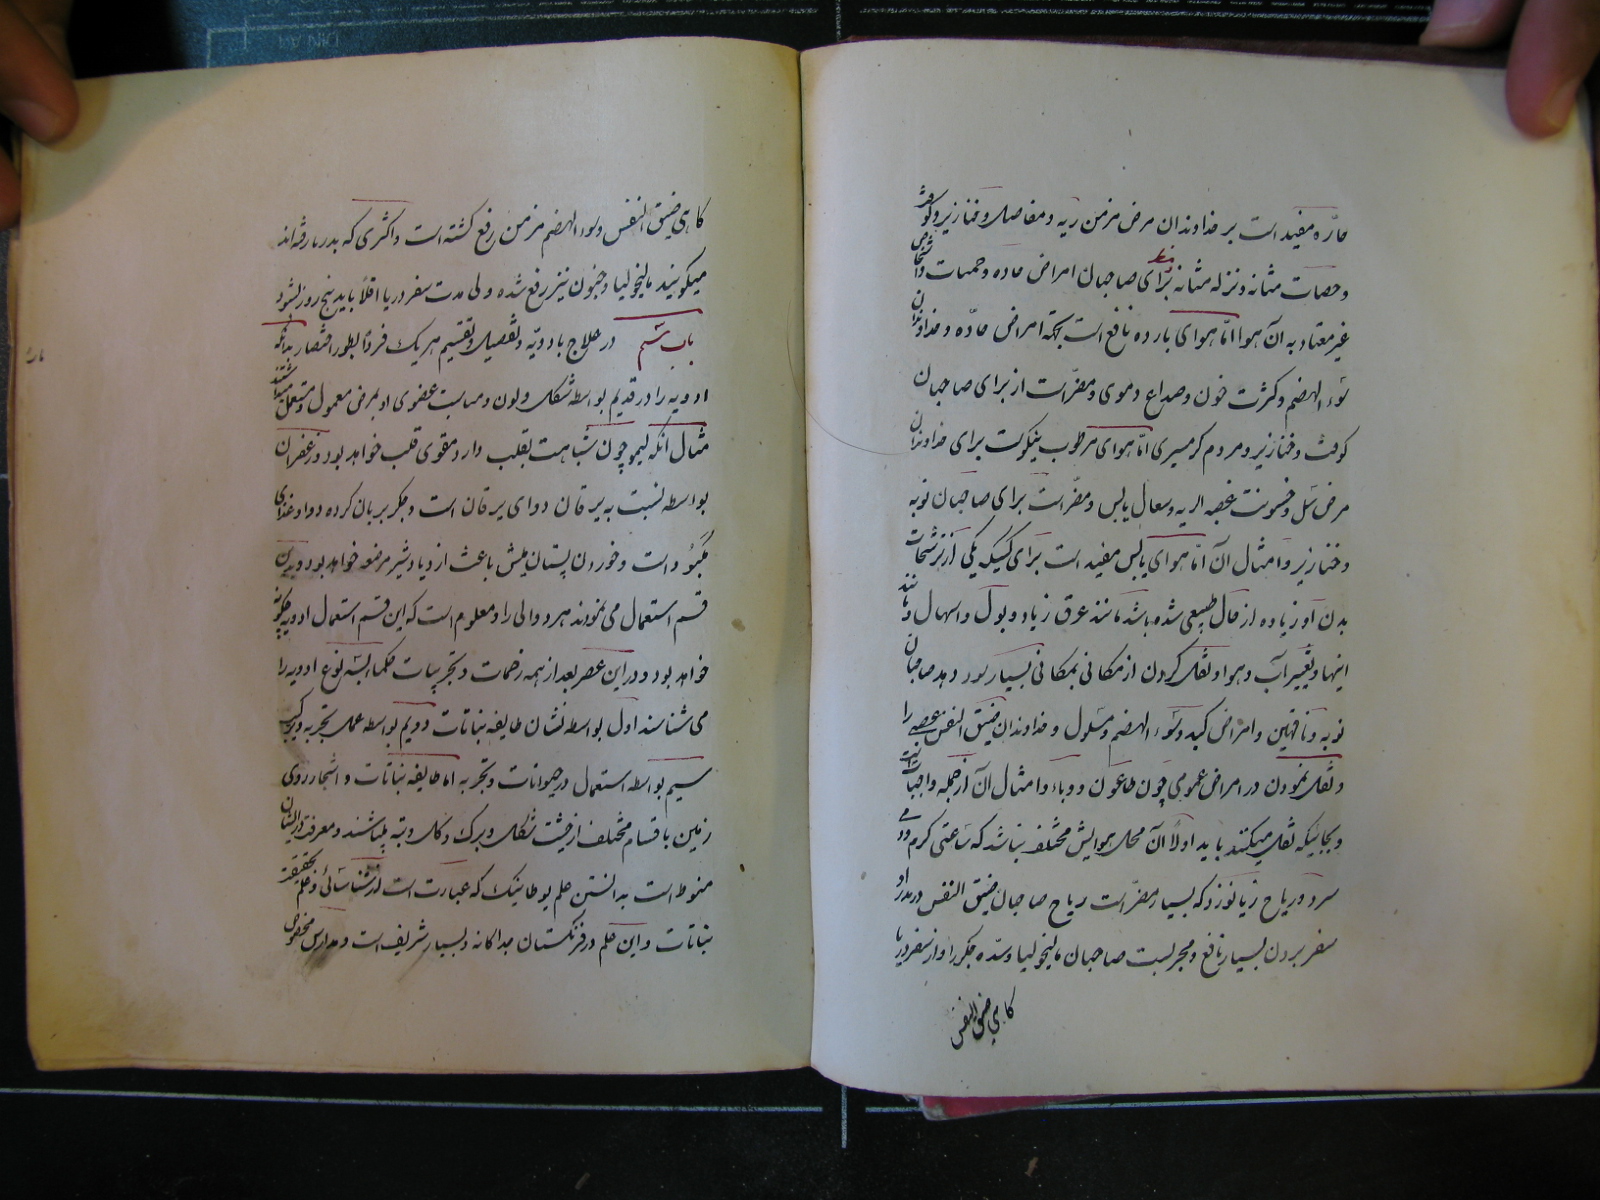 حارّه مفید است بر خداوندان مرض مزمن ریه و مفاصل و خنازیر و کوفت
و حصات مثانه و نزله مثانه برای صاحبان امراض حاده و حمیات و اشخاص
غیر معتاد به آن هوا امّا هوای بارده نافع است بجهة امراض حادّه و خداوندان
سوء الهضم و کثرت خون و صداع دموی و مضرّ است از برای صاحبان
کوفت و خنازیر و مردم گرمسیری امّا هوای مرطوب نیکوست برای خداوندان
مرض سل و خشونت قصبه الریه و سعال یابس و مضرّ است برای صاحبان نوبه
و خنازیر و امثال آن امّا هوای یابس مفید است برای کسیکه یکی از ترشحات
بدن او زیاده از حال طبیعی شده باشد مانند عرق زیاد و بول و اسهال و مانند
اینها و تغییر آب و هوا و نقل کردن از مکانی بمکانی بسیار سود دهد صاحبان
نوبه و ناقهین و امراض کبد و سوء الهضم و مسلول و خداوندان ضیق النفس عصبی را
و نقل نمودن در امراض عمومی چون طاعون و وباء و امثال آن از جمله واجبات است
و بجائیکه نقل میکنند باید اولاً آن محل هوایش مختلف نباشد که ساعتی گرم و دمی
سرد و ریاح زیا نوزد که بسیار مضرّ است ریاح صاحبان ضیق النفس در مدراو
سفر بردن بسیار نافع و مجربست صاحبان مالیخولیا و سدّه جگر را و از سفر دریا
گاهی ضیق النفس
گاهی ضیق النفس و سوء الهضم مزمن رفع گشته است و اکثری که بدریا رفته‌اند
میگویند مالیخولیا و جنون نیز رفع شده ولی مدت سفر دریا اقلاً باید پنج روز بشود
باب ششم در علاج بادویّه و تفصیل و تقسیم هر یک فرداً بطور اختصار بدانکه
ادویه را در قدیم بواسطه شکل و لون و مناسبت عضوی او بمرض معمول و مستعمل میداشتند
مثال آنکه لیمو چون شباهت بقلب دارد مقوی قلب خواهد بود و زعفران
بواسطه نسبت به یرقان دوای یرقان است و جگر بریان کرده دوا و غذای
مکبود است و خوردن پستان میش باعث ازدیاد شیر مرضعه خواهد بود و بدین
قسم استعمال می نمودند هر دوائی را و معلوم است که این قسم استعمال ادویه چگونه
خواهد بود و در این عصر بعد از همه زحمات و تجربیات حکما البسّه نوع ادویه را
می شناسند اول بواسطه نشان طایفه نباتات دویم بواسطه عمل تجربه و ترکیب
سیم بواسطه استعمال در حیوانات و تجربه اما طایفه نباتات و اشجار روی
زمین باقسام مختلف از حیث شکل و برگ و گل و بته میباشند و معرفت ایشان
منوط است به دانستن علم بوطانیک که عبارت است از شناسائی و علم بحقیقت
نباتات و این علم در فرنگستان جداگانه و بسیار شریف است و مدارس مخصوص